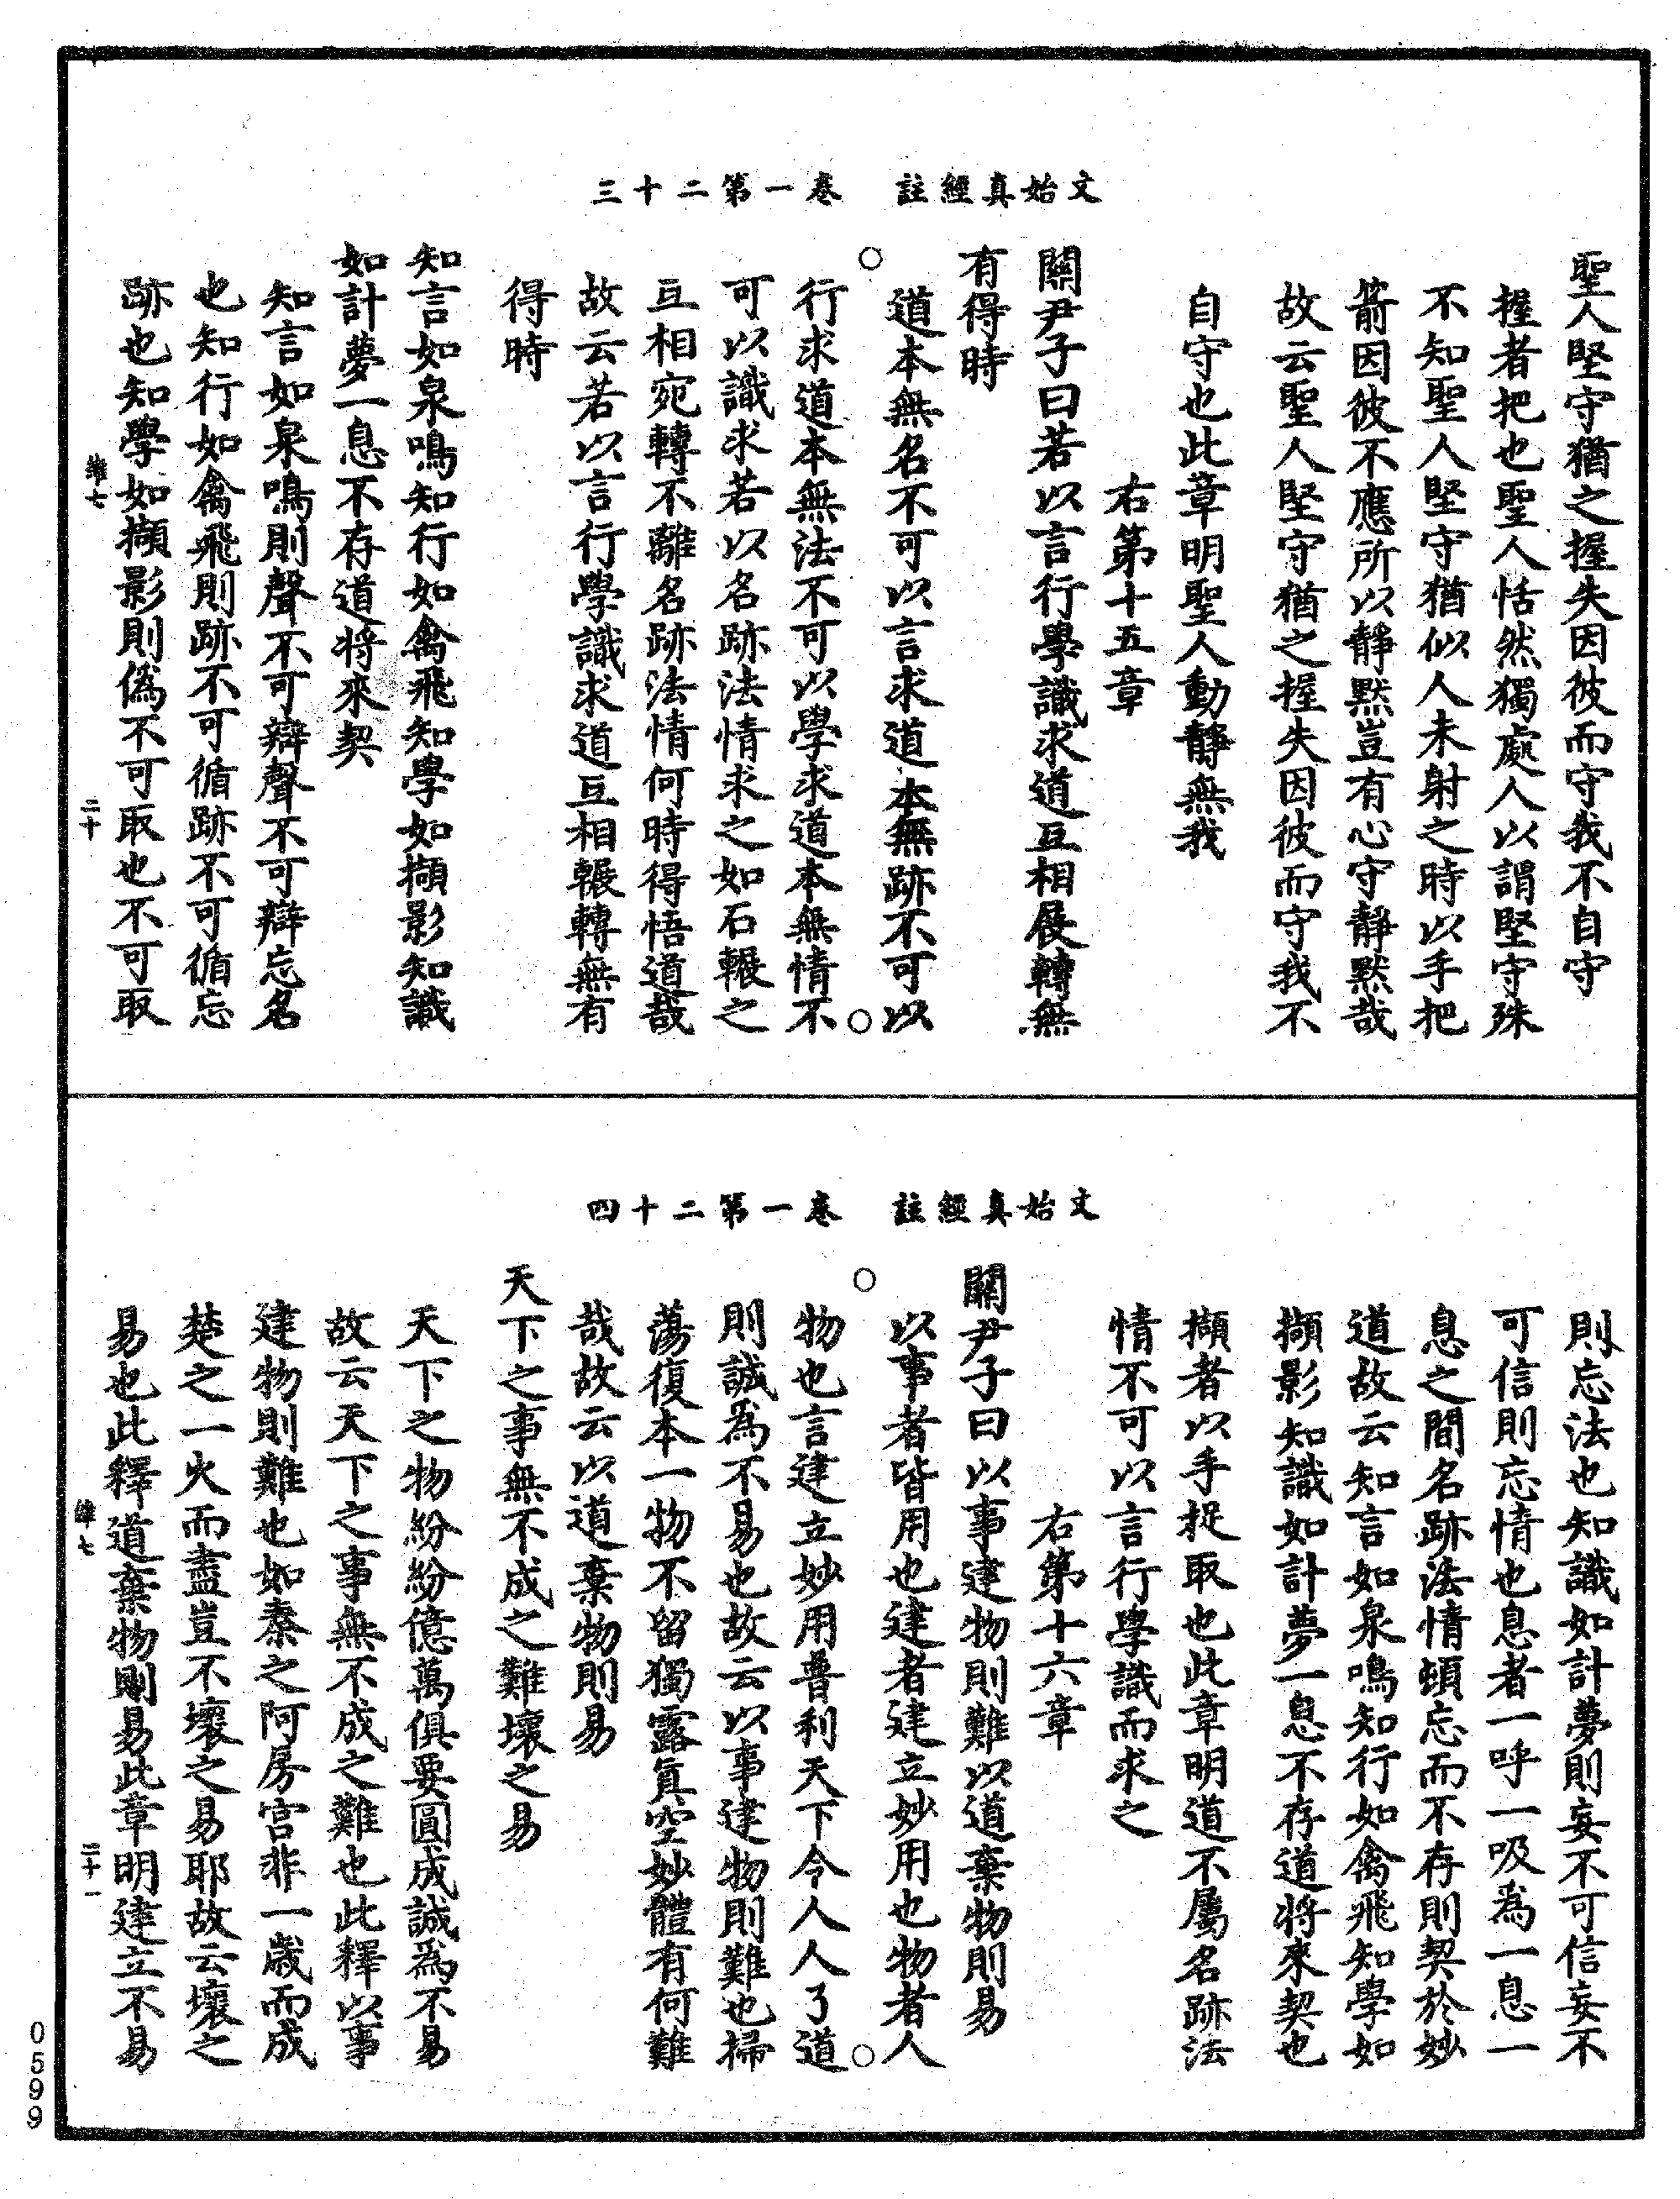 文始真經註　卷一第二十三
聖人堅守猶之握失因彼而守我不自守
握者把也聖人恬然獨處人以謂堅守殊
不知聖人堅守猶似人未射之時以手把
箭因彼不應所以靜默豈有心守靜默哉
故云聖人堅守猶之握失因彼而守我不
自守也此章明聖人動靜無我
右第十五章
關尹子曰若以言行學識求道互相展轉無
有得時
道本無名不可以言求道本無跡不可以
行求道本無法不可以學求道本無情不
可以識求若以名跡法情求之如石輾之
互相宛轉不離名跡法情何時得悟道哉
故云若以言行學識求道互相輾轉無有
得時
知言如泉鳴知行如禽飛知學如擷影知識
如計夢一息不存道將來契
知言如泉鳴則聲不可辯聲不可辯忘名
也知行如禽飛則跡不可循跡不可循忘
跡也知學如擷影則偽不可取也不可取
維七
二十
文始真經註　卷一第二十四
則忘法也知識如計夢則妄不可信妄不
可信則忘情也息者一呼一吸為一息一
息之間名跡法情頓忘而不存則契於妙
道故云知言如泉鳴知行如禽飛知學如
擷影知識如計夢一息不存道將來契也
擷者以手捉取也此章明道不屬名跡法
情不可以言行學識而求之
右第十六章
關尹子曰以事建物則難以道棄物則易
以事者皆用也建者建立妙用也物者人
物也言建立妙用普利天下令人人了道
則誠為不易也故云以事建物則難也掃
蕩復本一物不留獨露真空妙體有何難
哉故云以道棄物則易
天下之事無不成之難壞之易
天下之物紛紛億萬俱要圓成誠為不易
故云天下之事無不成之難也此釋以事
建物則難也如秦之阿房宮非一歲而成
楚之一火而盡豈不壞之易耶故云壞之
易也此釋道棄物則易此章明建立不易
維七
二十一
0599